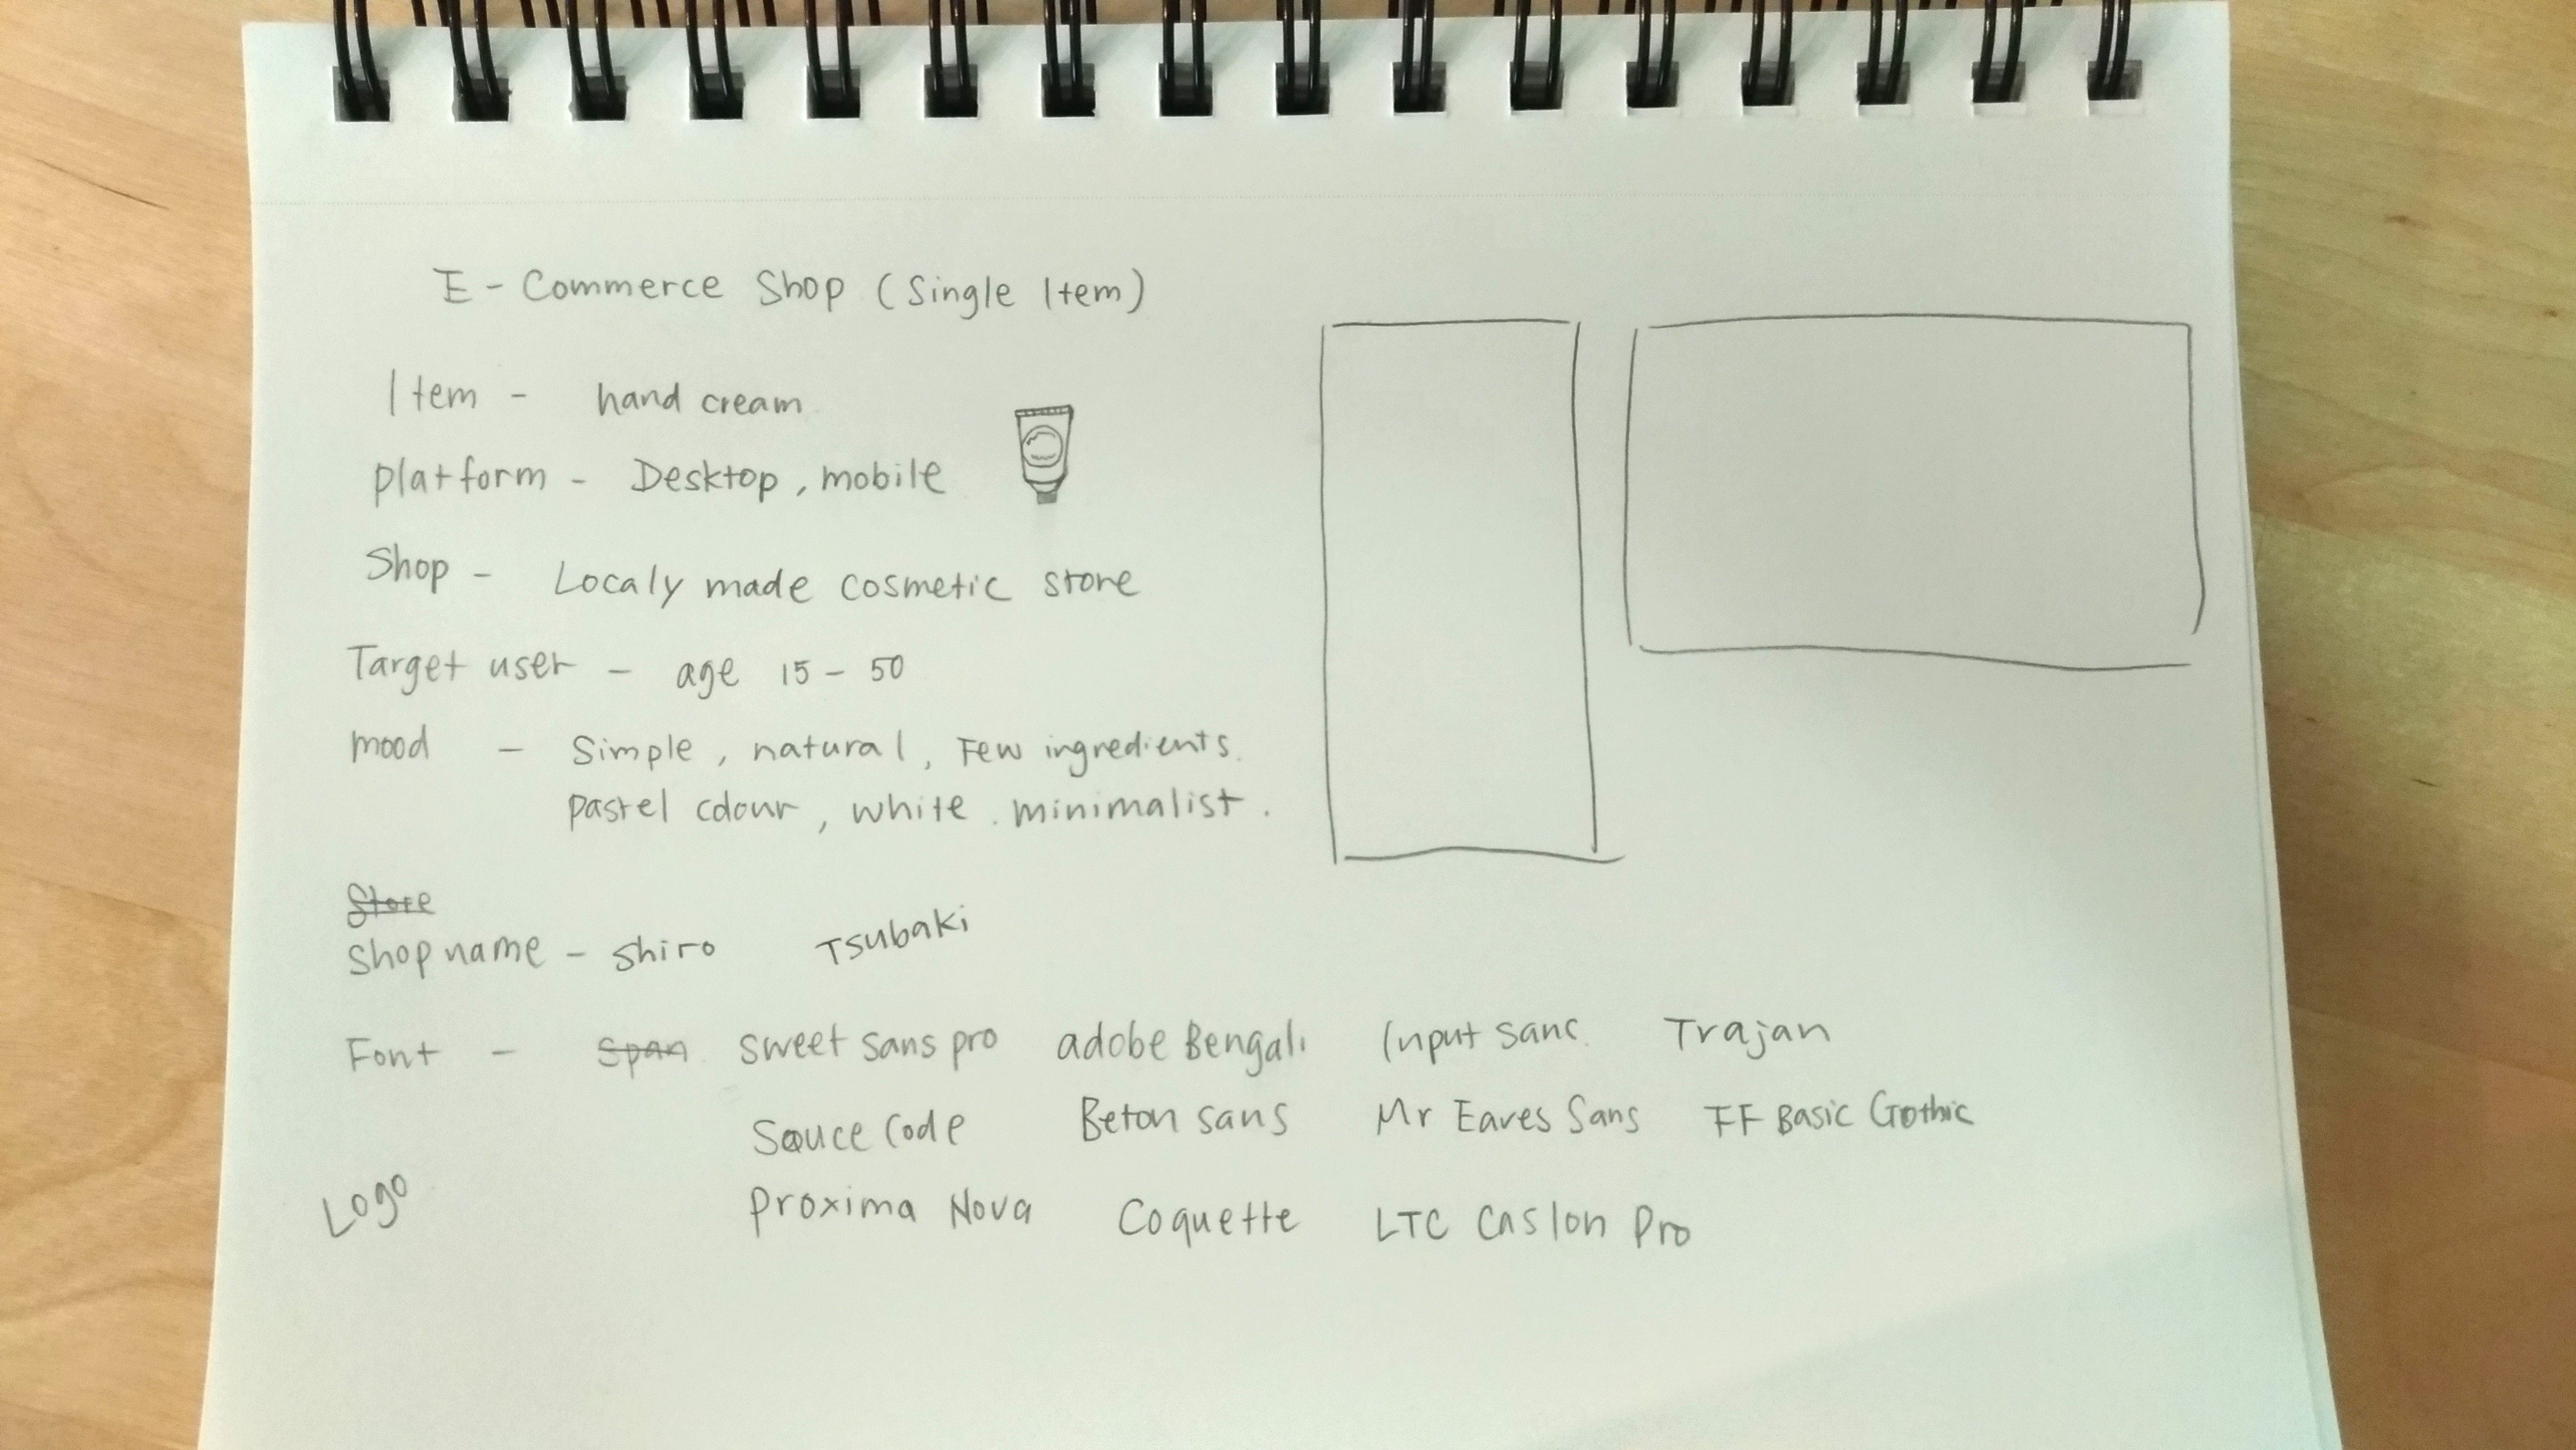 E - Commerce Shop (Single Item)
Item - hand cream
Platform - Desktop, mobile
Shop - Localy made cosmetic store
Target user - age 15 - 50
mood - Simple, natural, Few ingredients.
pastel colour, white. minimalist.
Store
Shop name - Shiro Tsubaki
Font - Span sweet sans pro adobe Bengali Input Sans Trajan
Sauce Code Beton sans Mr Eaves Sans FF Basic Gothic
Proxima Nova Coquette LTC Caslon Pro
Logo